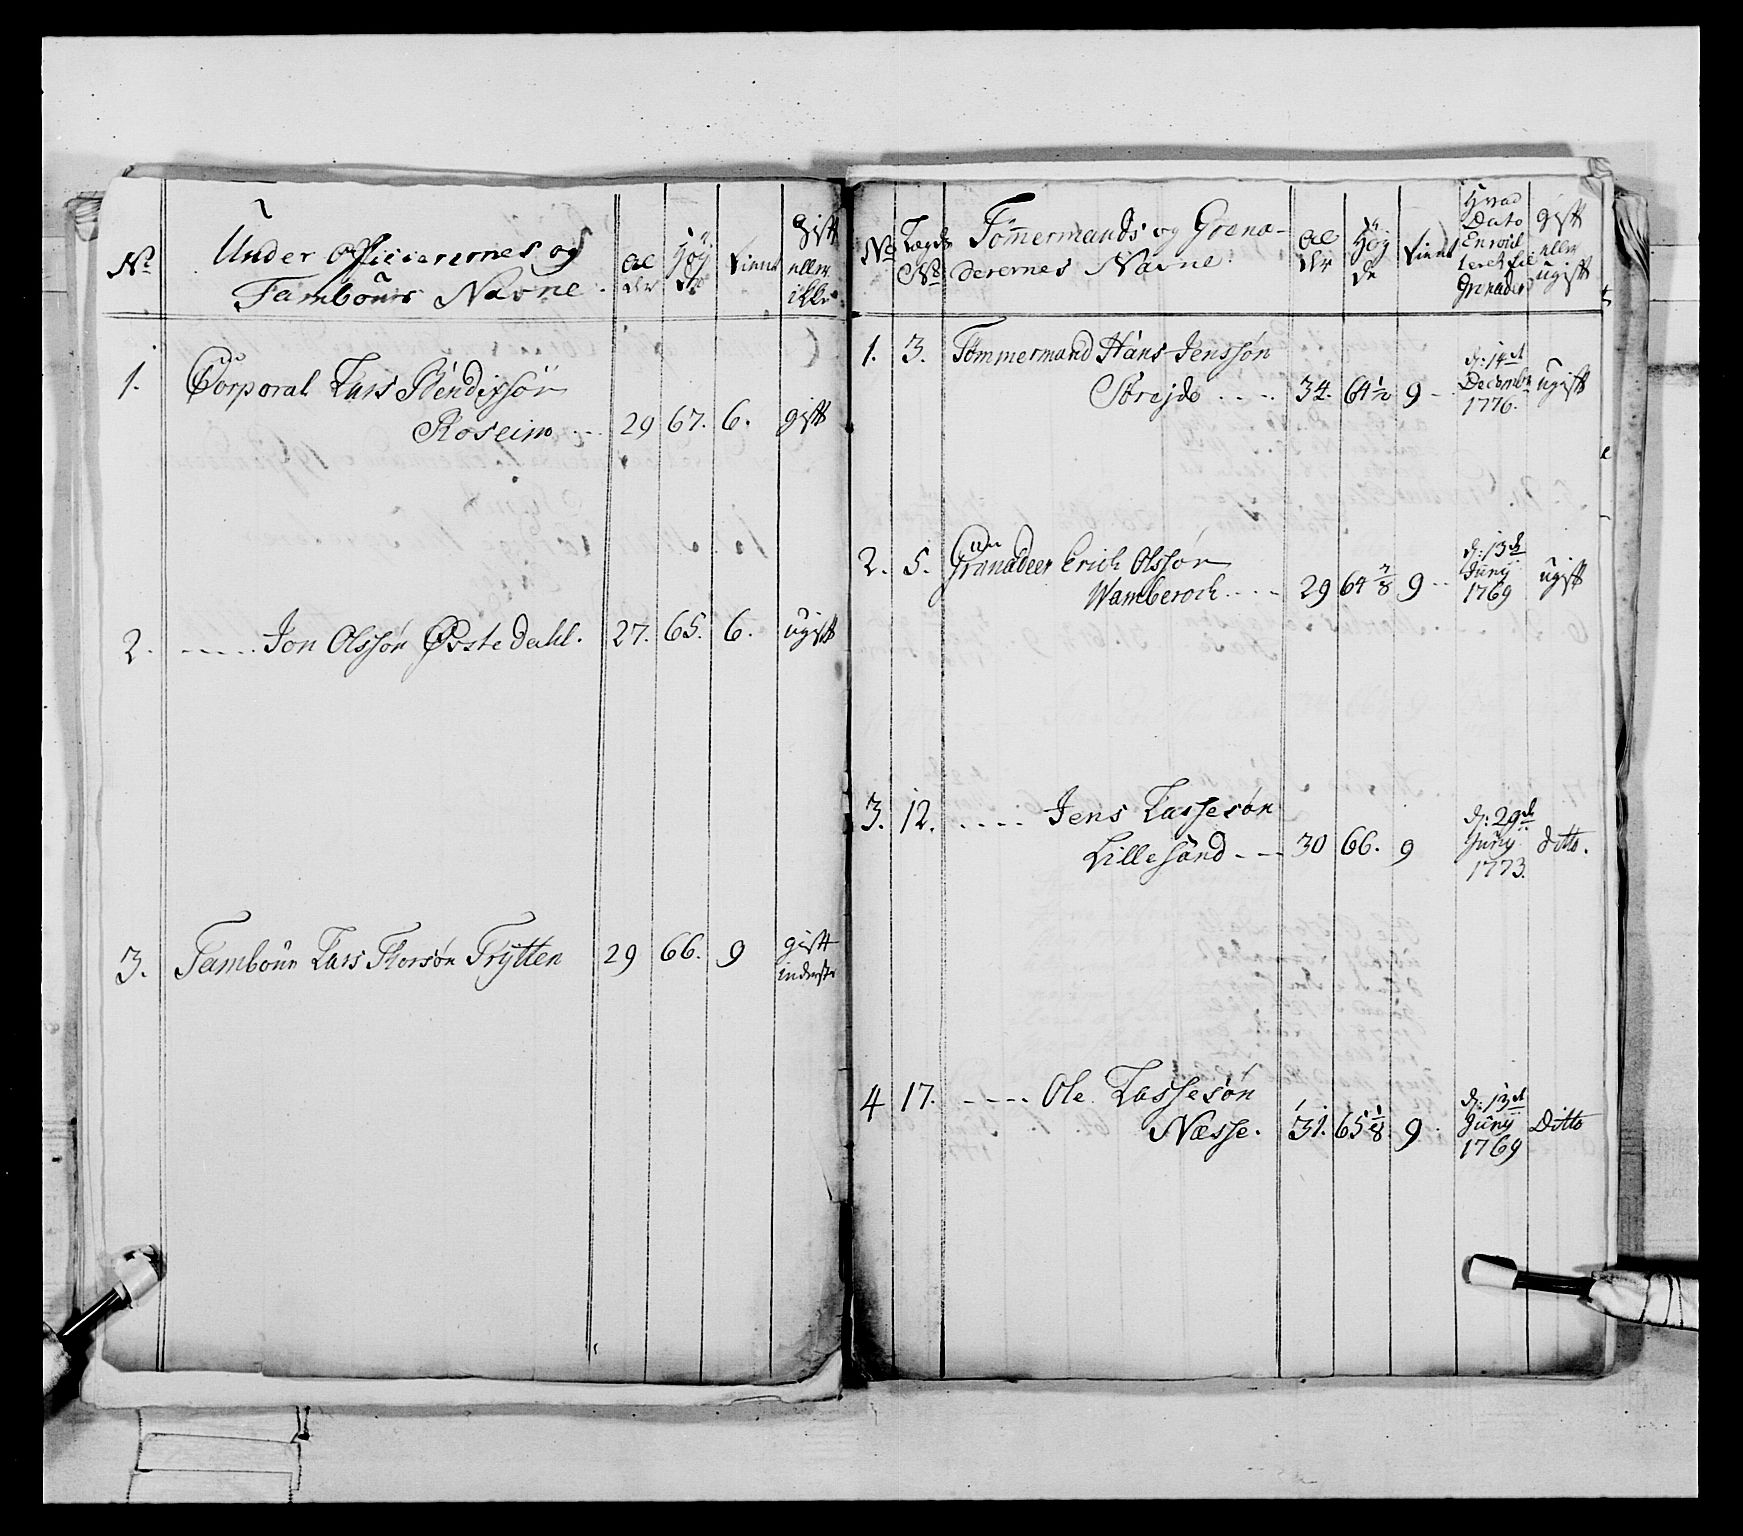 No.
Under Officierernes og
Tambours Navne.
al
der
Høy
de
tient
Gift
eller
ikke
1.
Corporal Lars Bendixsøn
Roseim ... 29 67. 6. gift
2. ..... Jon Olssøn Øvstedahl. 27. 65. 6. ugift
3. Tambour Lars Thorsøn Trytten 29 66. 9 gift
inderste
No.
Lægds
No.
Tømmermands og Grena-
derernes Navne.
al
der
Høy
de
tient
Hvad
Dato
Enroll
Grenader
gift
eller
ugift
1. 3. Tømmermand Hans Jenssøn
.... 34. 64 1/2 9 .. d: 14de
Decembr
1776. ugift
2. 5. Granadeer Erich Olssøn
Wamberoch .... 29 64 7/8 9 .. d: 13de
Juny
1769 ugift
3. 12. .... Jens Lassesøn
Lillesand --- 30 66. 9 d: 29de
Juny
1773. ditto.
4 17. .... Ole Lassesøn
Næsse. 31. 65 1/8. 9. d: 13de
Juny
1769 Ditto